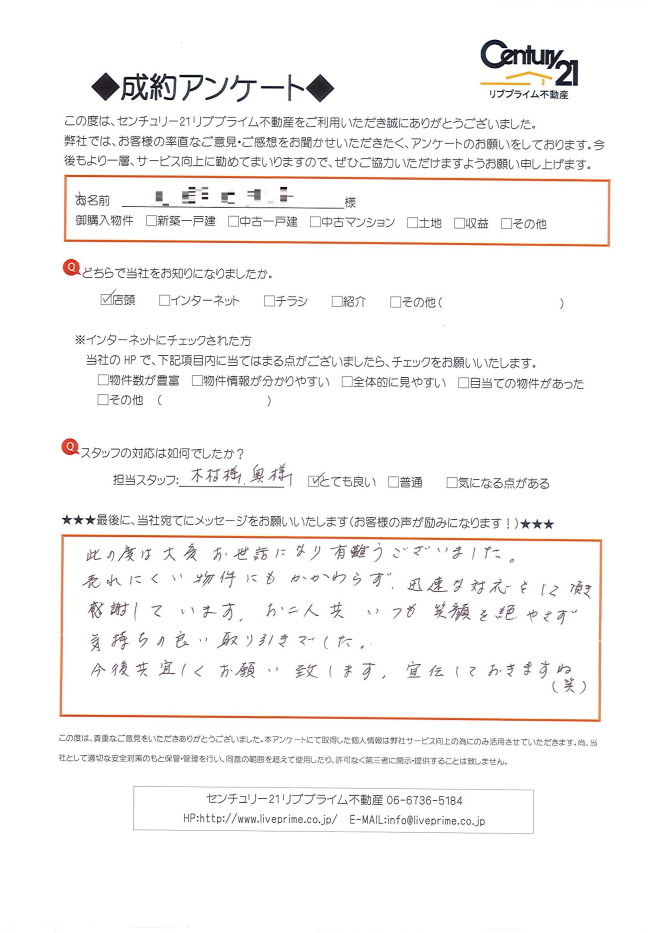 Century 21
リブプライム不動産
◆成約アンケート◆
この度は、センチュリー21リブプライム不動産をご利用いただき誠にありがとうございました。
弊社では、お客様の率直なご意見・ご感想をお聞かせいただきたく、アンケートのお願いをしております。今
後もより一層、サービス向上に勤めてまいりますので、ぜひご協力いただけますようお願い申し上げます。
お名前 様
御購入物件 □新築一戸建 □中古一戸建 □中古マンション □土地 □収益 □その他
Q どちらで当社をお知りになりましたか。
☑店頭 □インターネット □チラシ □紹介 □その他( )
※インターネットにチェックされた方
当社のHPで、下記項目内に当てはまる点がございましたら、チェックをお願いいたします。
□物件数が豊富 □物件情報が分かりやすい □全体的に見やすい □目当ての物件があった
□その他 ( )
Q スタッフの対応は如何でしたか?
担当スタッフ: 木村様、奥様 ☑とても良い □普通 □気になる点がある
★★★最後に、当社宛てにメッセージをお願いいたします(お客様の声が励みになります!)★★★
此の度は大変お世話になり有難うございました。
売れにくい物件にもかかわらず、迅速な対応をして頂き
感謝しています。お二人共いつも笑顔を絶やさず
気持ちの良い取り引きでした。
今後共宜しくお願い致します。宣伝しておきますね
(笑)
この度は、貴重なご意見をいただきありがとうございました。本アンケートにて取得した個人情報は弊社サービス向上の為にのみ活用させていただきます。尚、当
社として適切な安全対策のもと保管・管理を行い、同意の範囲を超えて使用したり、許可なく第三者に開示・提供することは致しません。
センチュリー21リブプライム不動産 06-6736-5184
HP:http://www.liveprime.co.jp/ E-MAIL:info@liveprime.co.jp